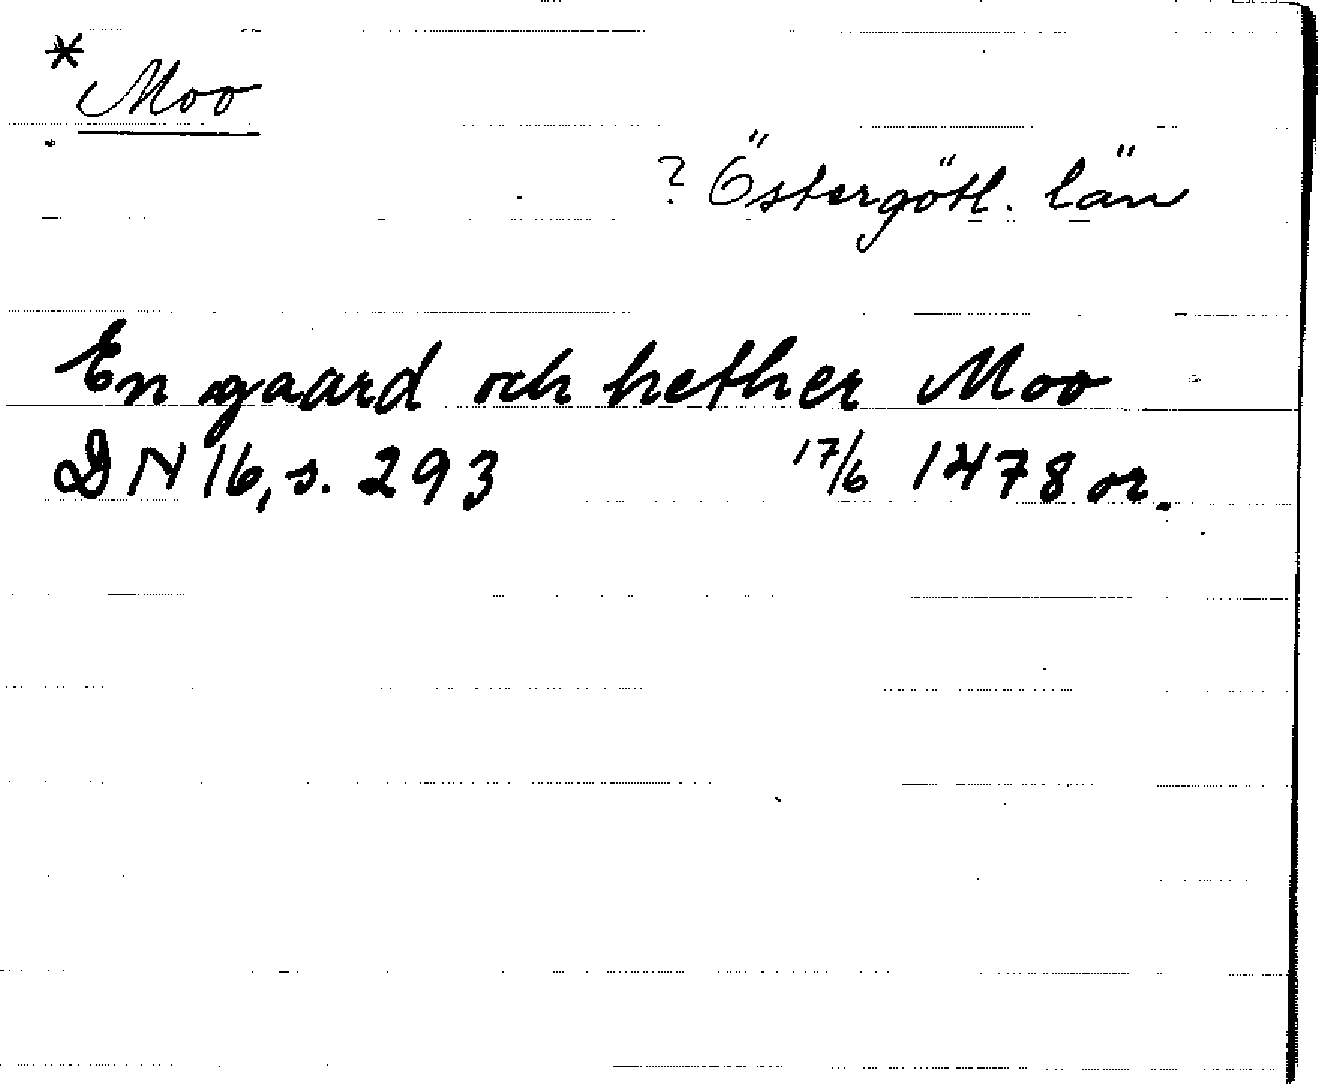 * Moo
? Östergötl. län
En gaard och hether Moo
DN 16, s. 293 17/6 1478 or.